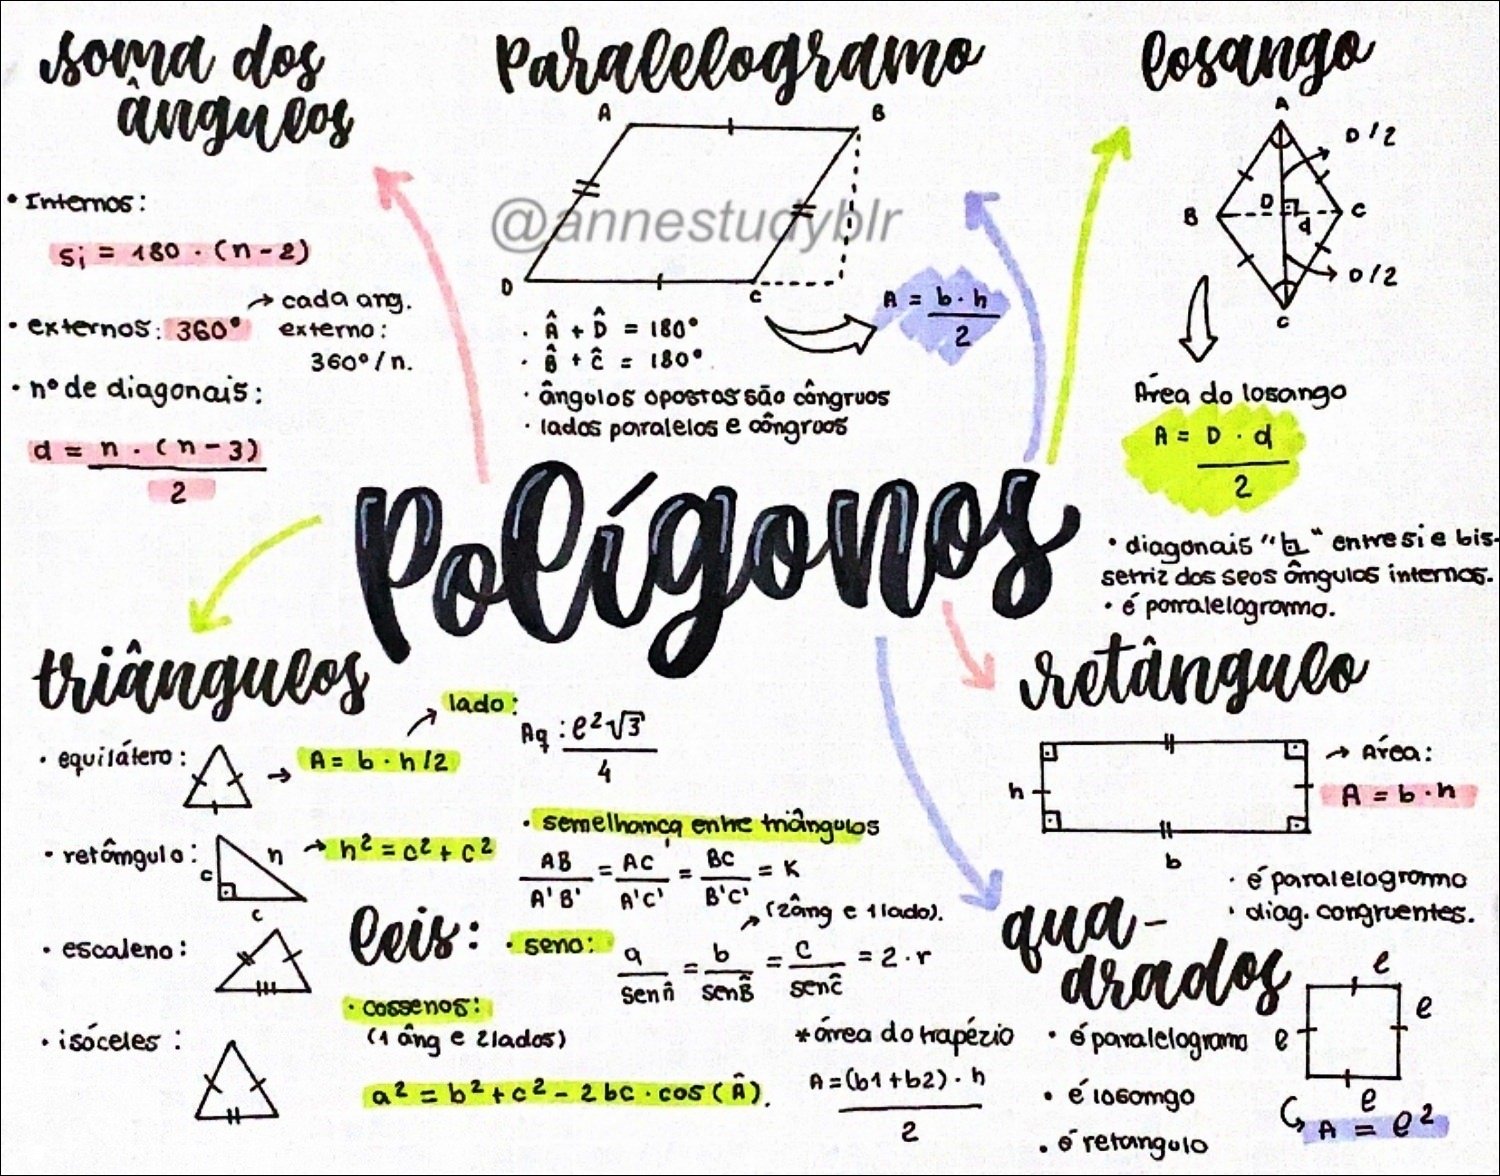 soma dos
ângulos
• Internos:
Si = 180 · (n - 2)
→ cada ang.
• externos: 360° externo:
360°/n.
• nº de diagonais:
d = n · (n - 3)
2
Paralelogramo
A B
D C
@annestudyblr
A = b · h
2
· Â + D̂ = 180°
· B̂ + Ĉ = 180°
· ângulos opostos são côngruos
· lados paralelos e côngruos
losango
A
D/2
B D d C
D/2
C
Área do losango
A = D · d
2
• diagonais "⊾" entre si e bis-
setriz dos seos ângulos internos.
• é paralelogramo.
Polígonos
triângulos
• equilátero: → A = b · h/2
lado:
Aq : l²√3
4
• retângulo: c h c → h² = c² + c²
• escaleno:
• isóceles:
• semelhança entre triângulos
AB = AC = BC = K
A'B' A'C' B'C'
leis:
• seno: → (2âng e 1lado).
a = b = c = 2 · r
sen sen B̂ sen ĉ
• cossenos:
(1 âng e 2lados)
a² = b² + c² - 2bc · cos(Â).
* área do trapézio
A = (b1 + b2) · h
2
retângulo
h
b
→ Área:
A = b · h
• é paralelogramo
• diag. congruentes.
qua-
drados
l
l
l
l
• é paralelogramo
• é losango
• é retangulo
A = l²